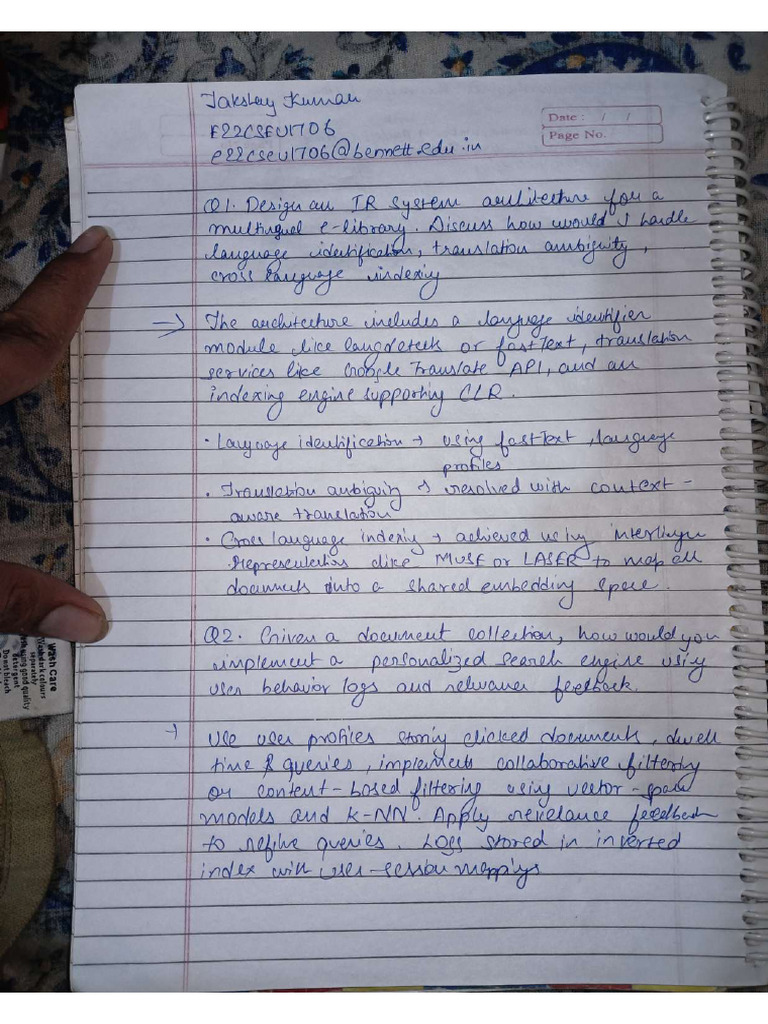 Jakshay Kumar
E22CSEU1706
e22cseu1706@bennett.edu.in
Date : / /
Page No.
Q1. Design an IR system architecture for a
multilingual e-library. Discuss how would I handle
language identification, translation ambiguity,
cross language indexing
⇒ The architecture includes a language identifier
module like langdetect or fastText, translation
services like Google Translate API, and an
indexing engine supporting CLR.
• Language identification → using fastText, language
profiles
• Translation ambiguity → resolved with context-
aware translation
• Cross language indexing → achieved using interlingual
representation like MUSE or LASER to map all
documents into a shared embedding space.
Q2. Given a document collection, how would you
implement a personalized search engine using
user behavior logs and relevance feedback.
→ Use user profiles storing clicked documents, dwell
time & queries, implements collaborative filtering
or content-based filtering using vector-space
models and K-NN. Apply relevance feedback
to refine queries. Logs stored in inverted
index with user-session mappings
Wash Care
Wash dark colours
separately
using good quality
detergent
Do not bleach